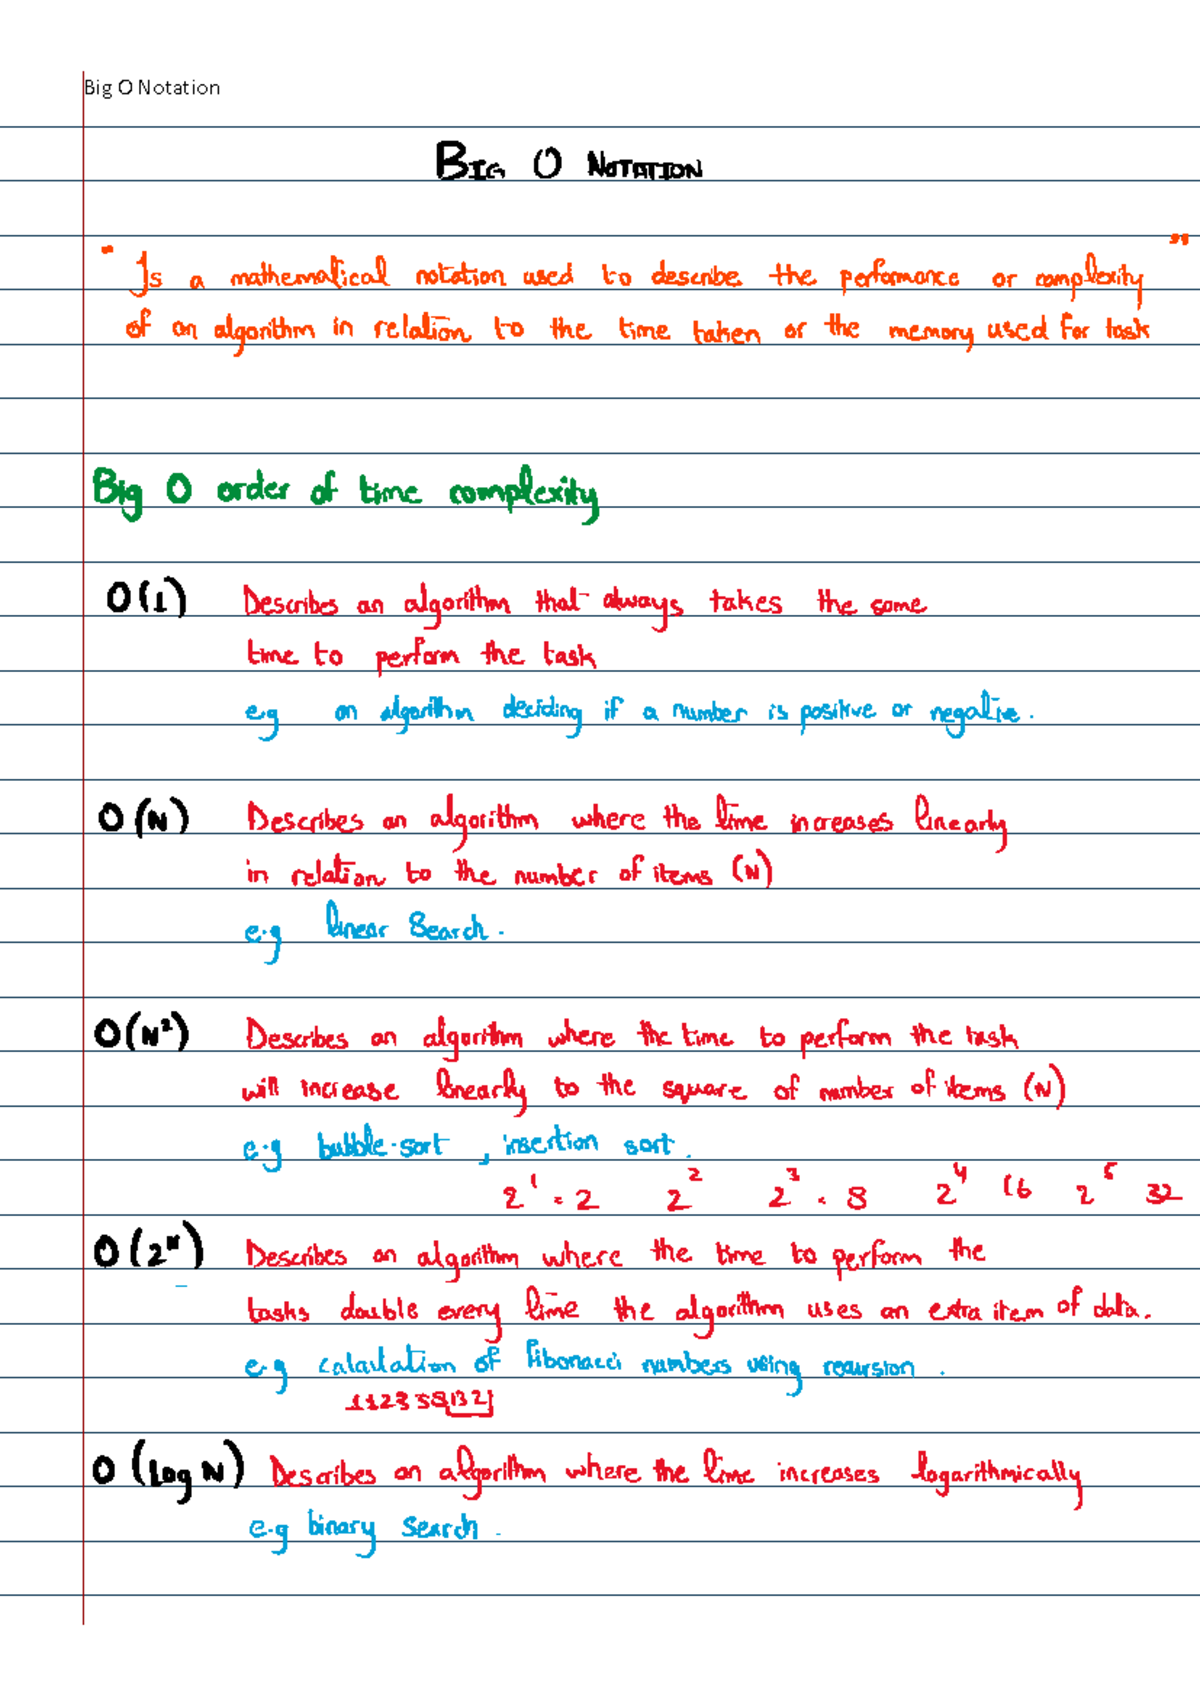 Big O Notation
BIG O NOTATION
" Is a mathematical notation used to describe the performance or complexity "
of an algorithm in relation to the time taken or the memory used for task
Big O order of time complexity
O(1) Describes an algorithm that always takes the same
time to perform the task
e.g an algorithm deciding if a number is positive or negative.
O(N) Describes an algorithm where the time increases linearly
in relation to the number of items (N)
e.g linear Search.
O(N²) Describes an algorithm where the time to perform the task
will increase linearly to the square of number of items (N)
e.g bubble-sort , insertion sort.
2¹ = 2 2² 2³ = 8 2⁴ 16 2⁵ 32
O(2ᴺ) Describes an algorithm where the time to perform the
tasks double every time the algorithm uses an extra item of data.
e.g calculation of fibonacci numbers using recursion.
1 1 2 3 5 8 13 21
O(Log N) Describes an algorithm where the time increases logarithmically
e.g binary search.